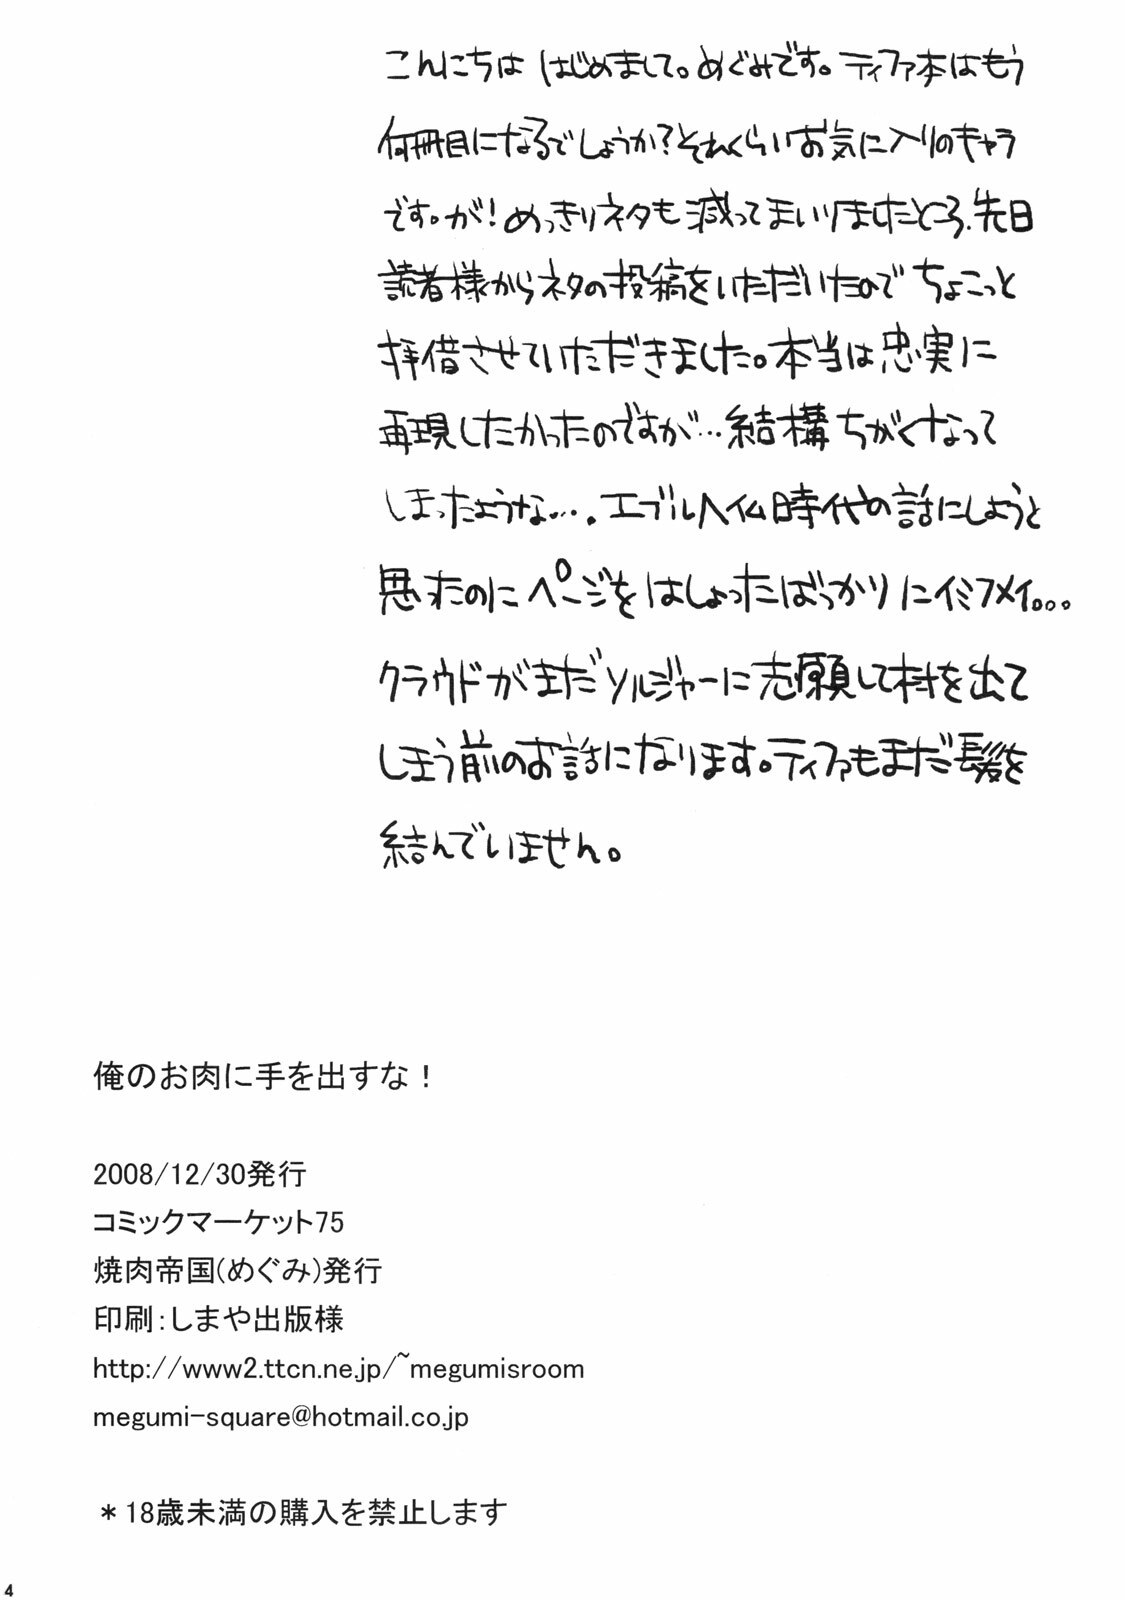 こんにちは はじめまして。めぐみです。ティファ本はもう
何冊目になるでしょうか?それくらいお気に入りのキャラ
です。が!めっきりネタも減ってまいりましたところ、先日
読者様からネタの投稿をいただいたのでちょこっと
拝借させていただきました。本当は忠実に
再現したかったのですが…結構ちがくなって
しまったような…。エブルヘイム時代の話にしようと
思ったのにページをはしょったばっかりにイミフメイ。。。
クラウドがまだソルジャーに志願して村を出て
しまう前のお話になります。ティファもまだ髪を
結んでいません。
俺のお肉に手を出すな!
2008/12/30発行
コミックマーケット75
焼肉帝国(めぐみ)発行
印刷:しまや出版様
http://www2.ttcn.ne.jp/~megumisroom
megumi-square@hotmail.co.jp
*18歳未満の購入を禁止します
4